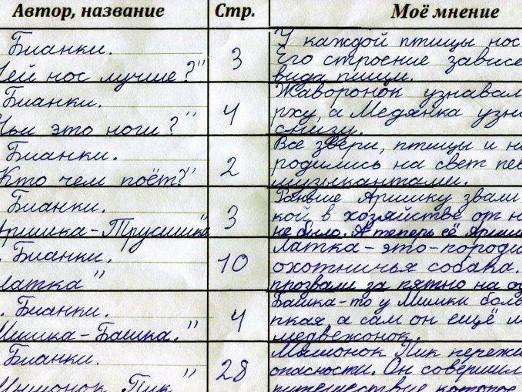 Автор, название
Стр.
Моё мнение
Бианки.
Чей нос лучше?"
3
У каждой птицы нос
Его строение зависе
вида пищи.
Бианки.
Чьи это ноги?"
4
Жаворонок узнавал
рху, а Медянка узн
снизу.
Бианки.
Кто чем поёт?"
2
Все звери, птицы и н
родились на свет пе
музыкантами.
Бианки.
Аришка-Трусишка
3
Раньше Аришку звали
кой в хозяйстве от н
не было. А теперь её Ариш
. Бианки.
Латка"
10
Латка - это - пород
охотничья собака.
прозвали за пятно на
. Бианки.
Мишка-Башка."
4
Башка-то у Мишки бол
пкая, а сам он ещё м
медвежонок.
Бианки.
Мышонок Пик"
28
Мышонок Пик переж
опасности. Он соверши
путешествие которо